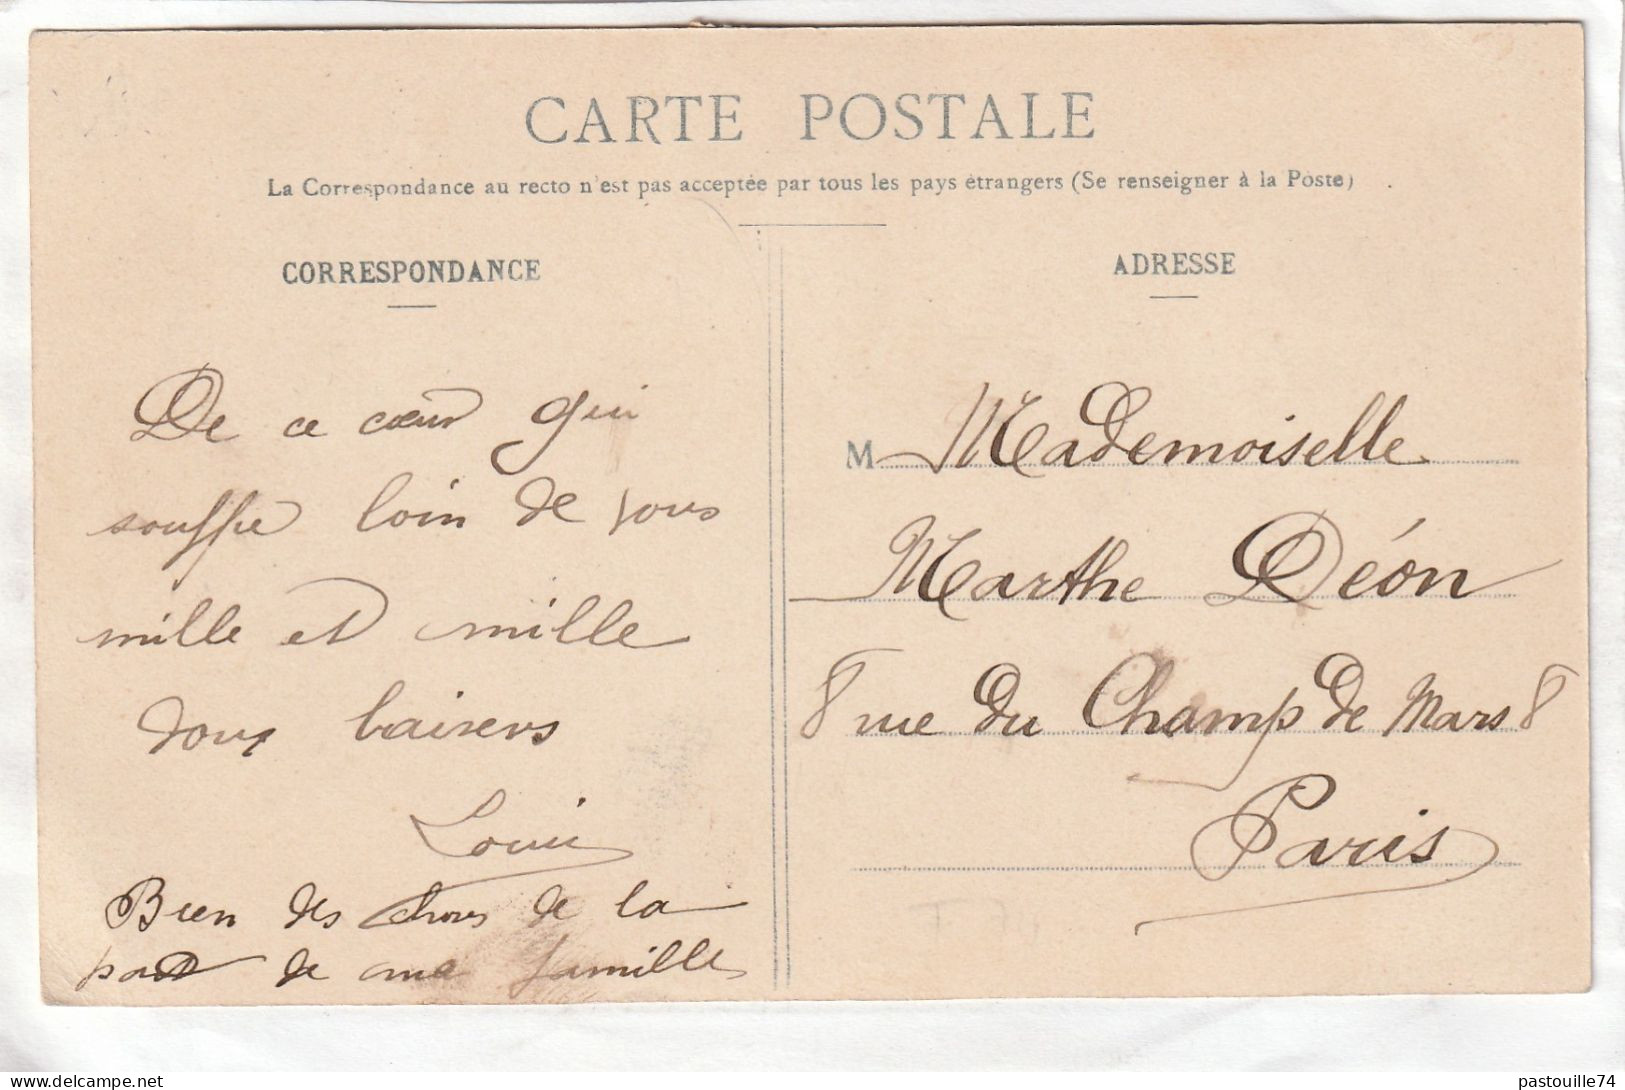 CARTE POSTALE
La Correspondance au recto n'est pas acceptée par tous les pays étrangers (Se renseigner à la Poste)
CORRESPONDANCE
De ce cœur qui
souffre loin de vous
mille et mille
doux baisers
Louis
Bien des choses de la
part de ma famille
ADRESSE
M Mademoiselle
Marthe Déon
8 rue du Champ de Mars 8
Paris
delcampe.net
pastouille74